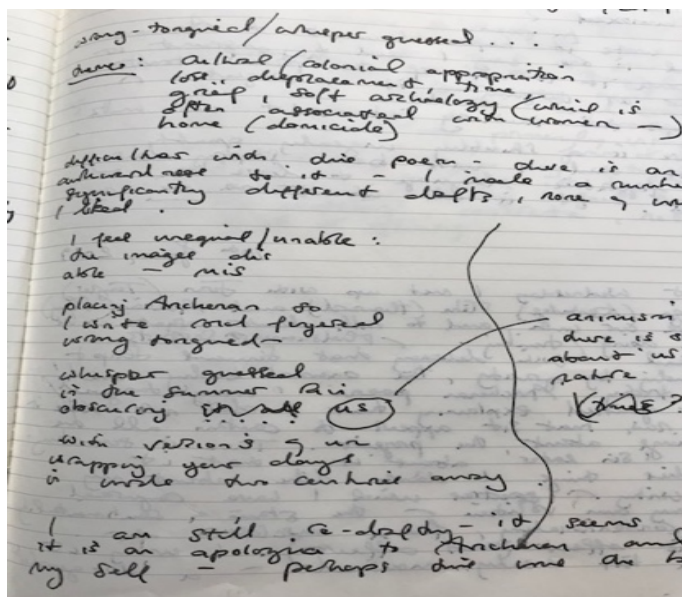 wrong-tongued/whisper guessed . . .
themes: cultural/colonial appropriation
loss, displacement, time,
grief, soft archaeology (which is
often associated with women —)
home (domicide)
difficulties with this poem - there is an
awkwardness to it - I made a number
significantly different drafts, none of
I liked.
I feel unequal/unable:
the images dis
able - mis
placing Archeran so
I write and
wrong tongued—
whisper guessed
is the summer rain
obscuring us
with versions of
wrapping your days
I write two centuries away.
animism
there is
about us
nature
I am still re-drafting - it seems
it is an apologia to Archeran and
my self - perhaps this was the